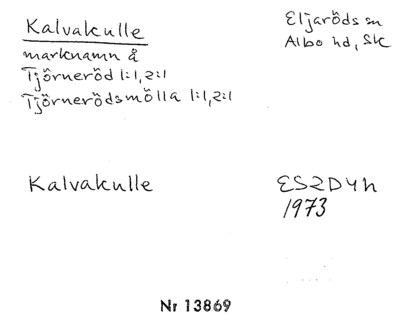 Kalvakulle
marknamn å
Tjörneröd 1:1,2:1
Tjörnerödsmölla 1:1,2:1
Eljaröds sn
Albo hd, Sk
Kalvakulle
ES2D4h
1973
Nr 13869